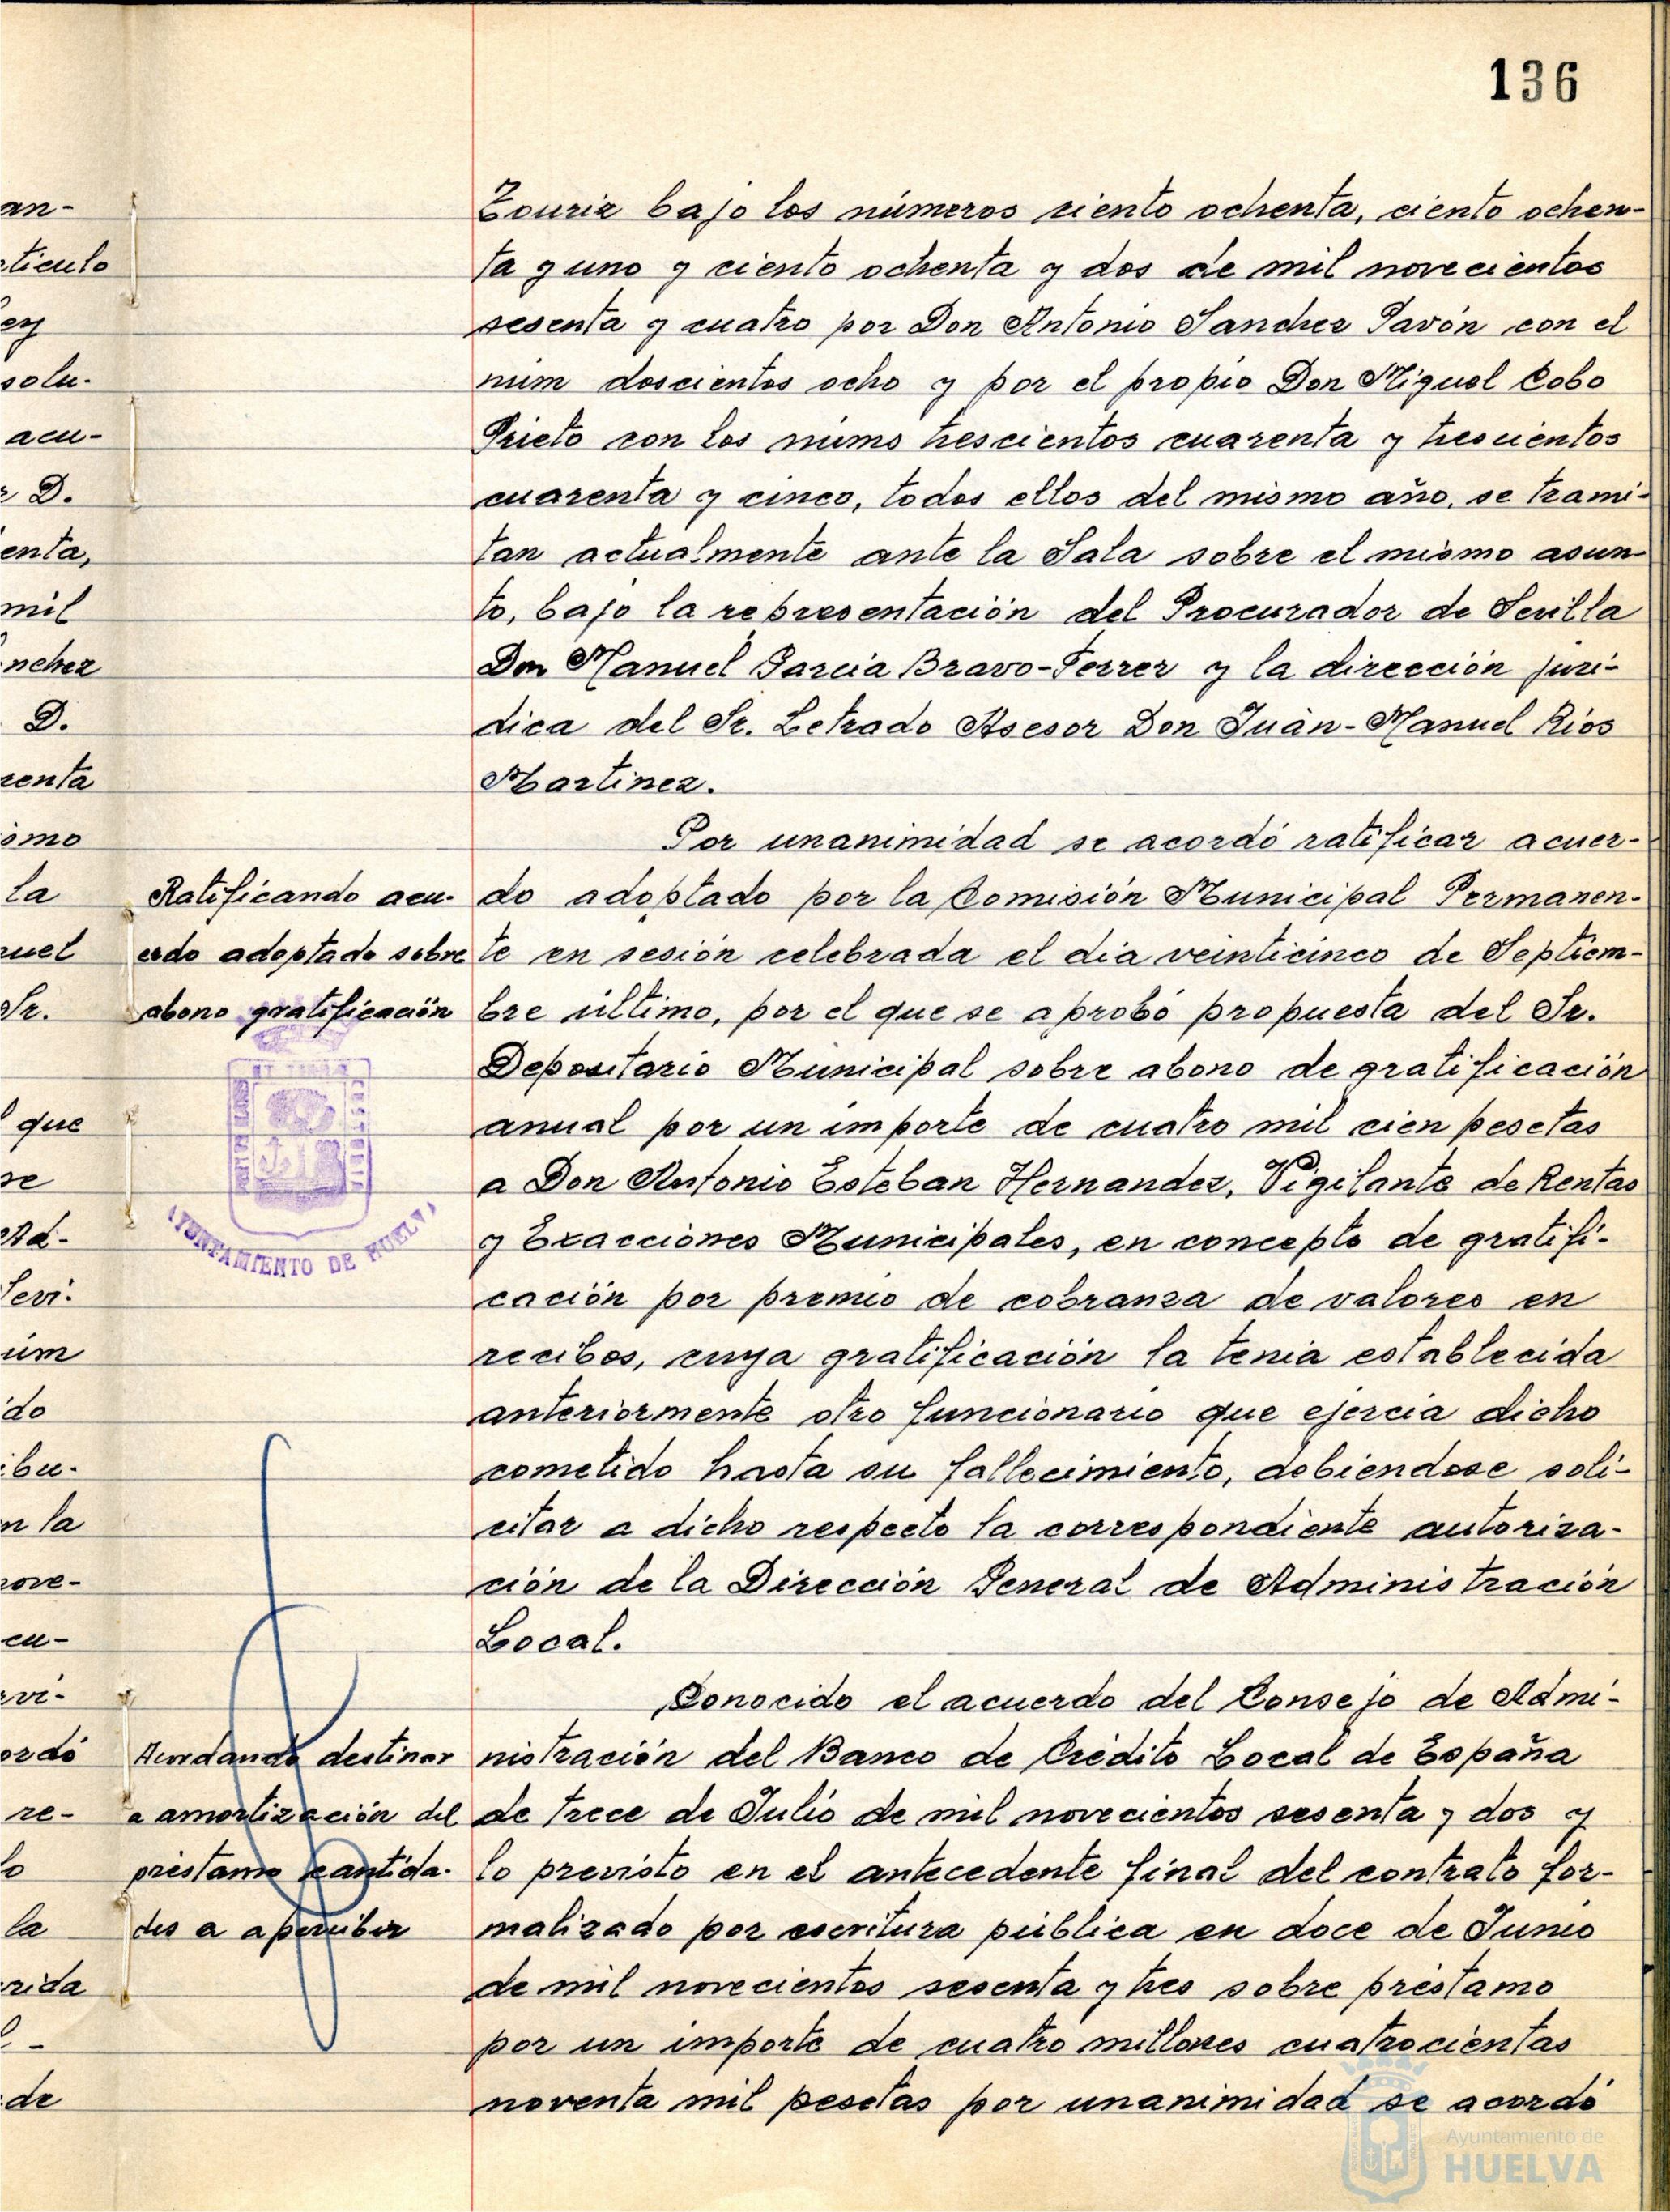 136
an-
ticulo
ey
solu-
acu-
D.
enta,
mil
nchez
D.
renta
ismo
la
nuel
Sr.
que
se
Ad-
Sevi-
úm
do
ibu-
n la
nove-
cu-
rvi-
ordó
re-
lo
la
rida
de
Touriz bajo los números ciento ochenta, ciento ochen-
ta y uno y ciento ochenta y dos de mil novecientos
sesenta y cuatro por Don Antonio Sanchez Pavón con el
núm doscientos ocho y por el propio Don Miguel Cobo
Prieto con los núms trescientos cuarenta y trescientos
cuarenta y cinco, todos ellos del mismo año, se trami-
tan actualmente ante la Sala sobre el mismo asun-
to, bajo la representación del Procurador de Sevilla
Don Manuel Garcia Bravo-Ferrer y la dirección juri-
dica del Sr. Letrado Asesor Don Juan-Manuel Rios
Martinez.
Por unanimidad se acordó ratificar acuer-
Ratificando acu-
erdo adoptado sobre
abono gratificación
do adoptado por la Comisión Municipal Permanen-
te en sesión celebrada el dia veinticinco de Septiem-
bre último, por el que se aprobó propuesta del Sr.
Depositario Municipal sobre abono de gratificación
anual por un importe de cuatro mil cien pesetas
a Don Antonio Esteban Hernandez, Vigilante de Rentas
y Exacciones Municipales, en concepto de gratifi-
cación por premio de cobranza de valores en
recibos, cuya gratificación la tenia establecida
anteriormente otro funcionario que ejercia dicho
cometido hasta su fallecimiento, debiendose soli-
citar a dicho respecto la correspondiente autoriza-
ción de la Dirección General de Administración
Local.
AYUNTAMIENTO DE HUELVA
Conocido el acuerdo del Consejo de Admi-
Acordando destinar
a amortización del
préstamo cantida-
des a apercibir
nistración del Banco de Crédito Local de España
de trece de Julio de mil novecientos sesenta y dos y
lo previsto en el antecedente final del contrato for-
malizado por escritura pública en doce de Junio
de mil novecientos sesenta y tres sobre préstamo
por un importe de cuatro millones cuatrocientas
noventa mil pesetas por unanimidad se acordó
Ayuntamiento de
HUELVA